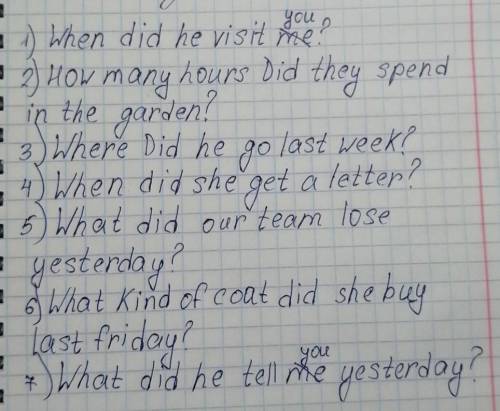 1) When did he visit you?
2) How many hours Did they spend
in the garden?
3) Where Did he go last week?
4) When did she get a letter?
5) What did our team lose
yesterday?
6) What Kind of coat did she buy
last friday?
7) What did he tell you yesterday?